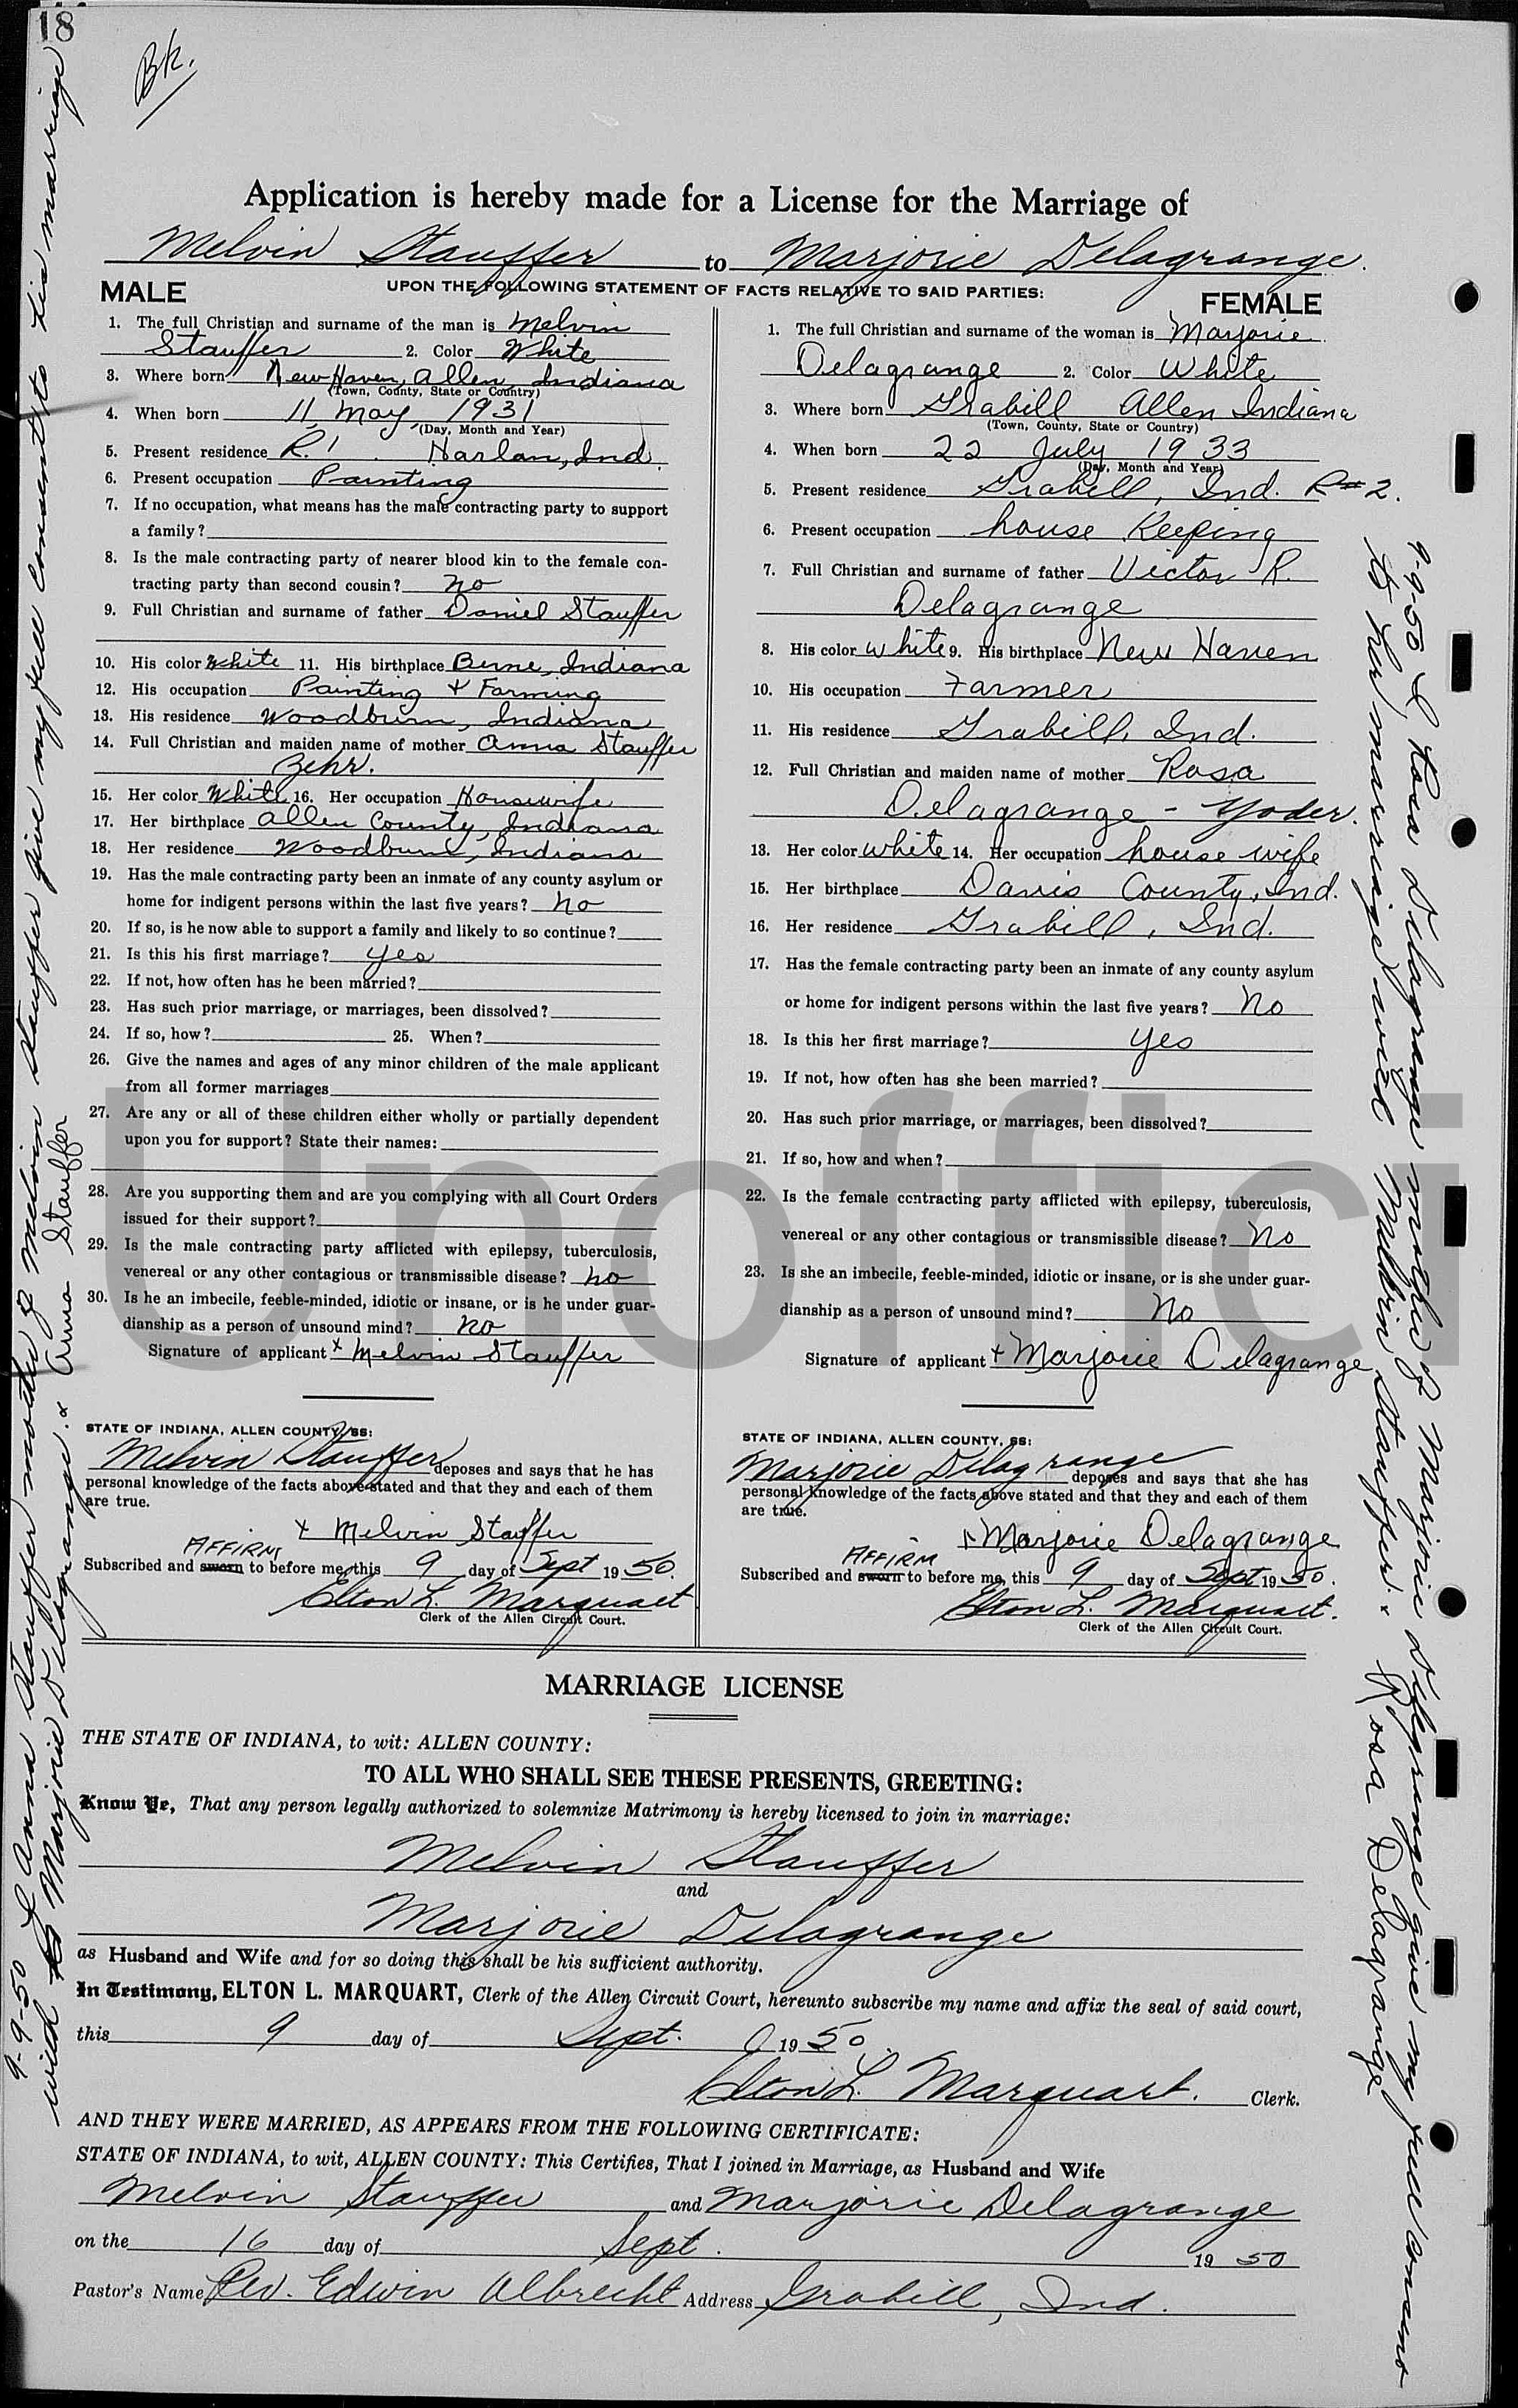 18
Bk.
Application is hereby made for a License for the Marriage of
Melvin Stauffer to Marjorie Delagrange.
UPON THE FOLLOWING STATEMENT OF FACTS RELATIVE TO SAID PARTIES:
MALE
1. The full Christian and surname of the man is Melvin
Stauffer 2. Color White
3. Where born New Haven, Allen, Indiana
(Town, County, State or Country)
4. When born 11, May, 1931
(Day, Month and Year)
5. Present residence R.1 Harlan, Ind.
6. Present occupation Painting
7. If no occupation, what means has the male contracting party to support
a family?
8. Is the male contracting party of nearer blood kin to the female con-
tracting party than second cousin? no
9. Full Christian and surname of father Daniel Stauffer
10. His color White 11. His birthplace Berne, Indiana
12. His occupation Painting & Farming
13. His residence Woodburn, Indiana
14. Full Christian and maiden name of mother Anna Stauffer
Zehr.
15. Her color White 16. Her occupation Housewife
17. Her birthplace Allen County, Indiana
18. Her residence Woodburn, Indiana
19. Has the male contracting party been an inmate of any county asylum or
home for indigent persons within the last five years? no
20. If so, is he now able to support a family and likely to so continue?
21. Is this his first marriage? yes
22. If not, how often has he been married?
23. Has such prior marriage, or marriages, been dissolved?
24. If so, how? 25. When?
26. Give the names and ages of any minor children of the male applicant
from all former marriages
27. Are any or all of these children either wholly or partially dependent
upon you for support? State their names:
28. Are you supporting them and are you complying with all Court Orders
issued for their support?
29. Is the male contracting party afflicted with epilepsy, tuberculosis,
venereal or any other contagious or transmissible disease? no
30. Is he an imbecile, feeble-minded, idiotic or insane, or is he under guar-
dianship as a person of unsound mind? no
Signature of applicant x Melvin Stauffer
STATE OF INDIANA, ALLEN COUNTY, SS:
Melvin Stauffer deposes and says that he has
personal knowledge of the facts above stated and that they and each of them
are true.
x Melvin Stauffer
AFFIRM
Subscribed and sworn to before me, this 9 day of Sept 1950.
Elton L. Marquart
Clerk of the Allen Circuit Court.
FEMALE
1. The full Christian and surname of the woman is Marjorie
Delagrange 2. Color White
3. Where born Grabill Allen Indiana
(Town, County, State or Country)
4. When born 22 July 1933
(Day, Month and Year)
5. Present residence Grabill, Ind. R#2.
6. Present occupation house Keeping
7. Full Christian and surname of father Victor R.
Delagrange
8. His color white 9. His birthplace New Haven
10. His occupation Farmer
11. His residence Grabill, Ind.
12. Full Christian and maiden name of mother Rosa
Delagrange - Yoder.
13. Her color white 14. Her occupation house wife
15. Her birthplace Davis County, Ind.
16. Her residence Grabill, Ind.
17. Has the female contracting party been an inmate of any county asylum
or home for indigent persons within the last five years? No
18. Is this her first marriage? yes
19. If not, how often has she been married?
20. Has such prior marriage, or marriages, been dissolved?
21. If so, how and when?
22. Is the female contracting party afflicted with epilepsy, tuberculosis,
venereal or any other contagious or transmissible disease? No
23. Is she an imbecile, feeble-minded, idiotic or insane, or is she under guar-
dianship as a person of unsound mind? No
Signature of applicant x Marjorie Delagrange
STATE OF INDIANA, ALLEN COUNTY, SS:
Marjorie Delagrange deposes and says that she has
personal knowledge of the facts above stated and that they and each of them
are true.
x Marjorie Delagrange
AFFIRM
Subscribed and sworn to before me, this 9 day of Sept 1950.
Elton L. Marquart.
Clerk of the Allen Circuit Court.
MARRIAGE LICENSE
THE STATE OF INDIANA, to wit: ALLEN COUNTY:
TO ALL WHO SHALL SEE THESE PRESENTS, GREETING:
Know Ye, That any person legally authorized to solemnize Matrimony is hereby licensed to join in marriage:
Melvin Stauffer
and
Marjorie Delagrange
as Husband and Wife and for so doing this shall be his sufficient authority.
In Testimony, ELTON L. MARQUART, Clerk of the Allen Circuit Court, hereunto subscribe my name and affix the seal of said court,
this 9 day of Sept. 1950.
Elton L. Marquart. Clerk.
AND THEY WERE MARRIED, AS APPEARS FROM THE FOLLOWING CERTIFICATE:
STATE OF INDIANA, to wit, ALLEN COUNTY: This Certifies, That I joined in Marriage, as Husband and Wife
Melvin Stauffer and Marjorie Delagrange
on the 16 day of Sept. 1950
Pastor's Name Rev. Edwin Albrecht Address Grabill, Ind.
9-9-50 I Anna Stauffer mother of Melvin Stauffer give my full consent to his marriage
with to Marjorie Delagrange. x Anna Stauffer
9-9-50 I Rosa Delagrange mother of Marjorie Delagrange give my full consent
to her marriage with Melvin Stauffer. x Rosa Delagrange
Unoffici